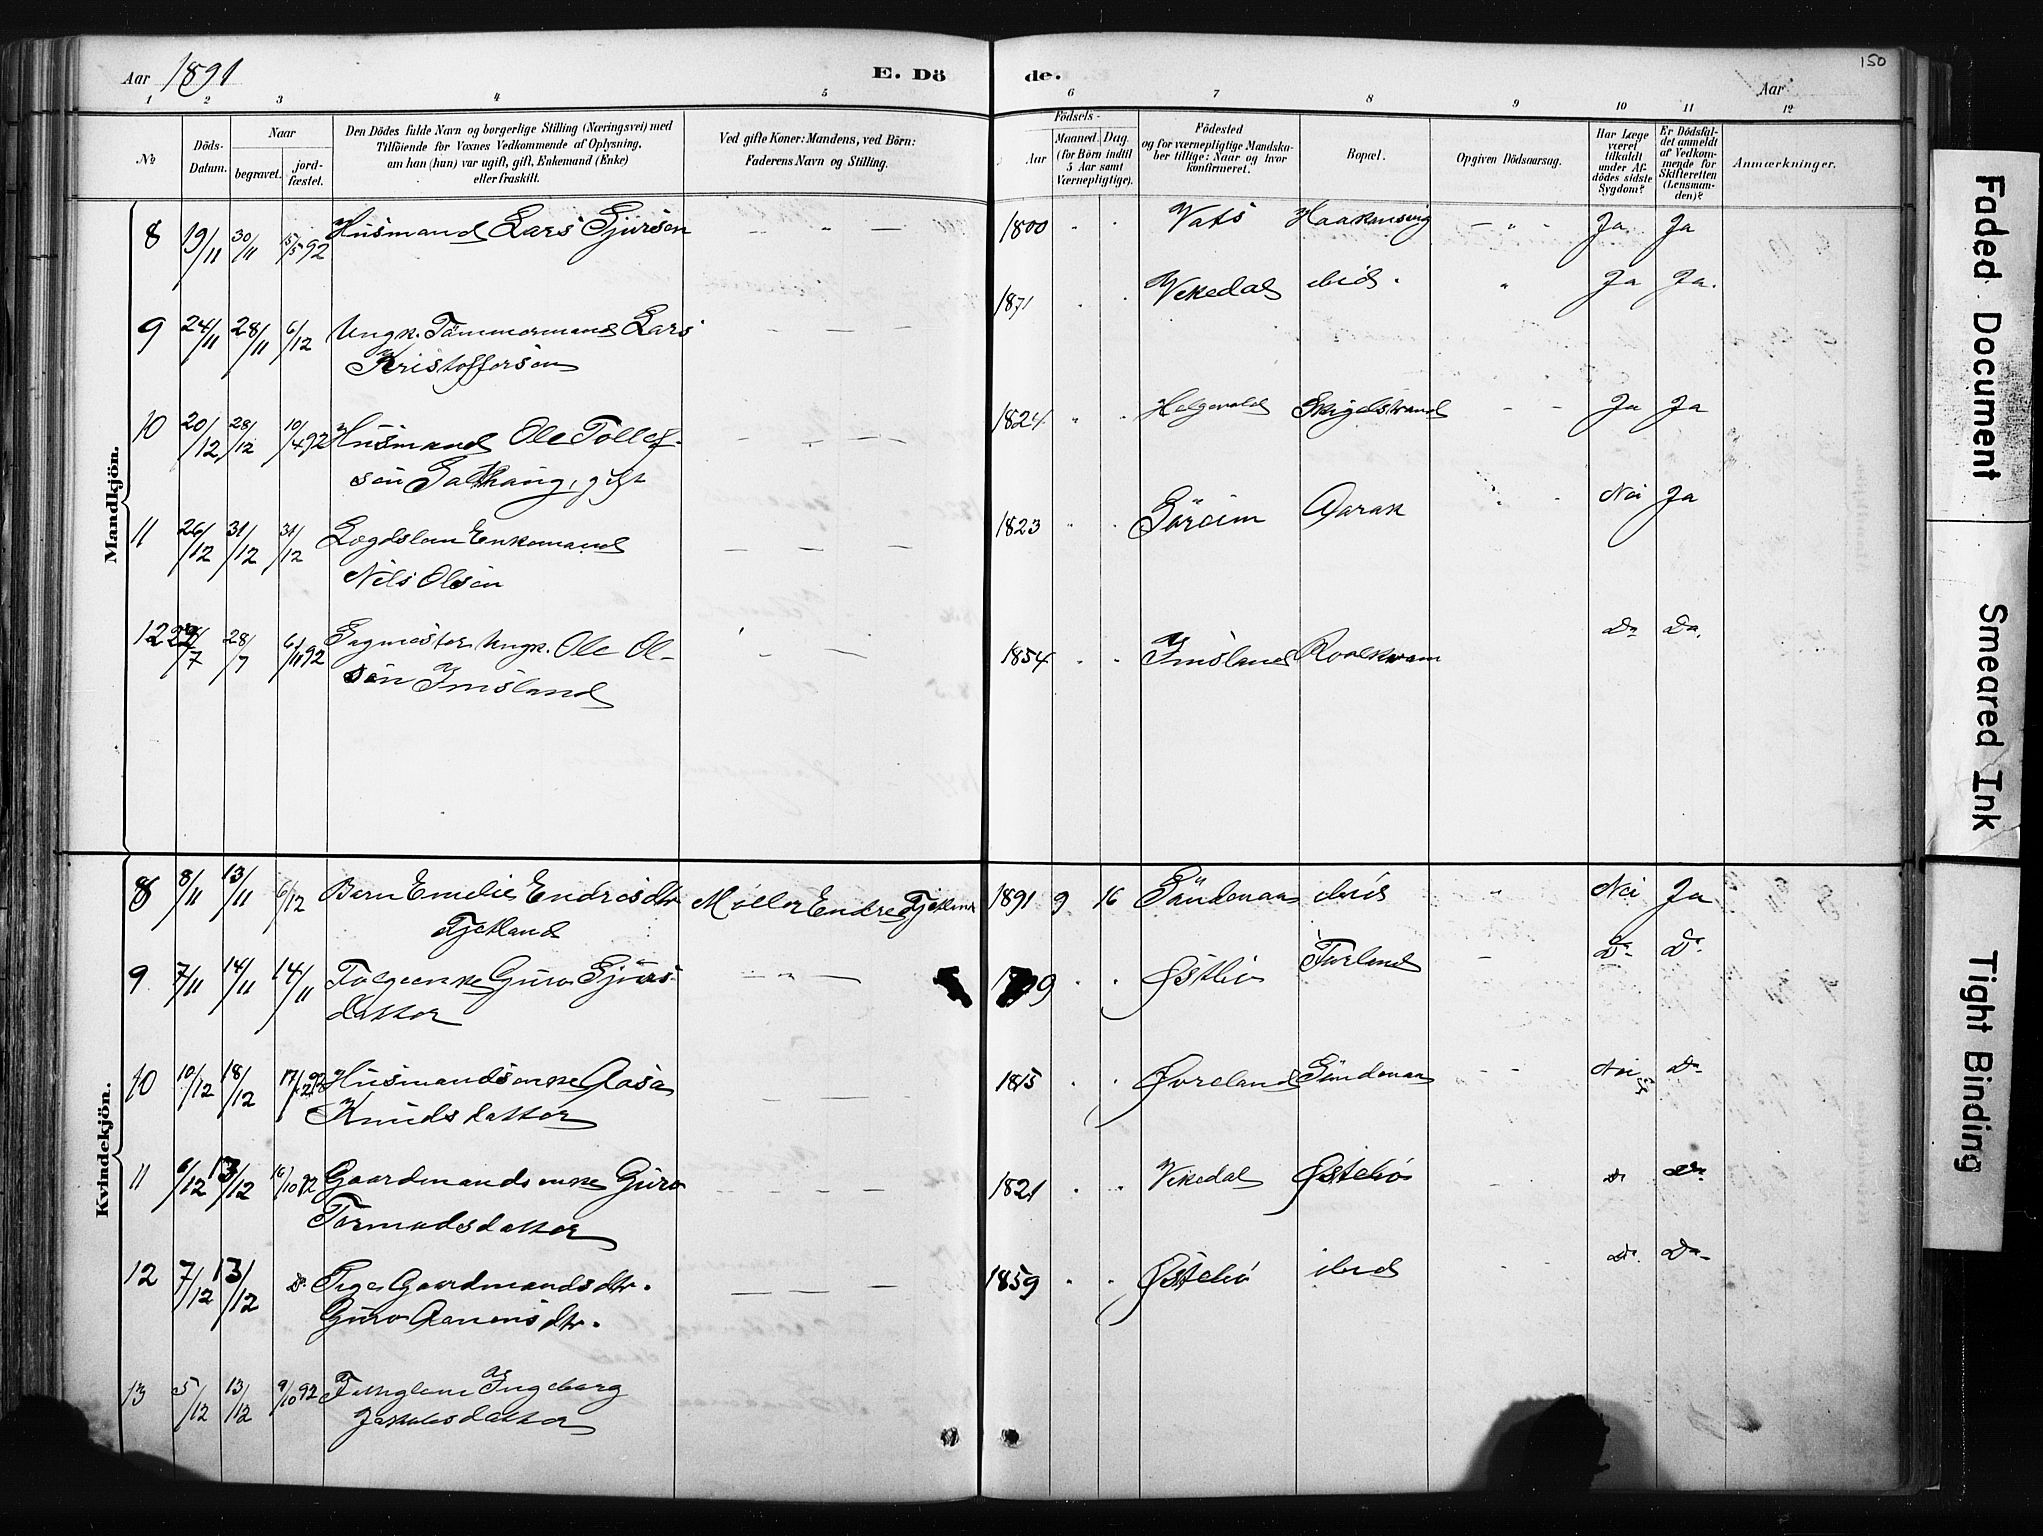 Aar 1891 E. Döde. Aar 150
1 2 3 4 5 6 7 8 9 10 11 12
No
Döds-Datum.
Naar
begravet.
jordfæstet.
Den Dödes fulde Navn og borgerlige Stilling (Næringsvei) med
Tilföiende for Voxnes Vedkommende af Oplysning,
om han (hun) var ugift, gift, Enkemand (Enke)
eller fraskilt.
Ved gifte Koner: Mandens, ved Börn:
Faderens Navn og Stilling.
Födsels-
Aar
Maaned. Dag.
(for Börn indtil
5 Aar samt
Værnepligtige).
Födested
og for værnepligtige Mandskaber tillige: Naar og hvor
konfirmeret.
Bopæl.
Opgiven Dödsaarsag.
Har Læge
været
tilkaldt
under Afdödes sidste
Sygdom?
Er Dödsfaldet anmeldt
af Vedkommende for
Skifteretten
(Lensmanden)?
Anmærkninger.
Mandkjön.
8 19/11 30/11 15/5 92 Husmand Lars Sjursen — " — 1800 " " Vats — " — Ja Ja
9 24/11 28/11 6/12 Ungk. Tömmermand Lars — — — 1871 " " Vikedal ibid. " Ja Ja.
Kristoffersen
10 20/12 28/12 10/4 92 Husmand Ole Tollef- — " — 1824 " " — — Ja Ja
sen, gift
11 26/12 31/12 31/12 Lægdslem Enkemand — — — 1823 " " Söreim Aarak " " Nei Ja
Nils Olsen
12 28/7 6/11 92 Sagmester Ungk. Ole Ol- — — 1854 " " Imsland Roalkvam Do Do.
sen Imsland
Kvindekjön.
8 8/11 13/11 6/12 Barn Emelie Endresdtr Møller Endre Tjetland 1891 9 16 Søndenaa ibid " Nei Ja
Tjetland
9 7/11 14/11 14/11 Guro Sjurs- — " — " " Østbø — Do Do
datter
10 10/12 18/12 Husmandsenke Aasa — — — 1815 " " Øvreland Søndenaa — — Nei Do
Knudsdatter
11 6/12 13/12 Gaardmandsenke Guro — — — 1821 " " Vikedal Østebø — Do Do
Tormodsdatter
12 7/12 13/12 Do. Pige Gaardmandsdtr. — — — 1859 " " Østebø ibid Do Do
Guro Aanensdtr.
13 5/12 13/12 9/10 92 Ingeborg
Jakobsdatter
Faded Document
Smeared Ink
Tight Binding